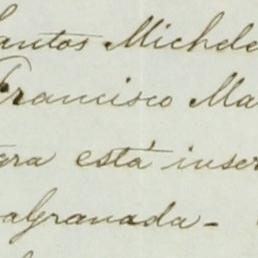 Santos Michele
Francisco Ma
ara está inser
aGranada -